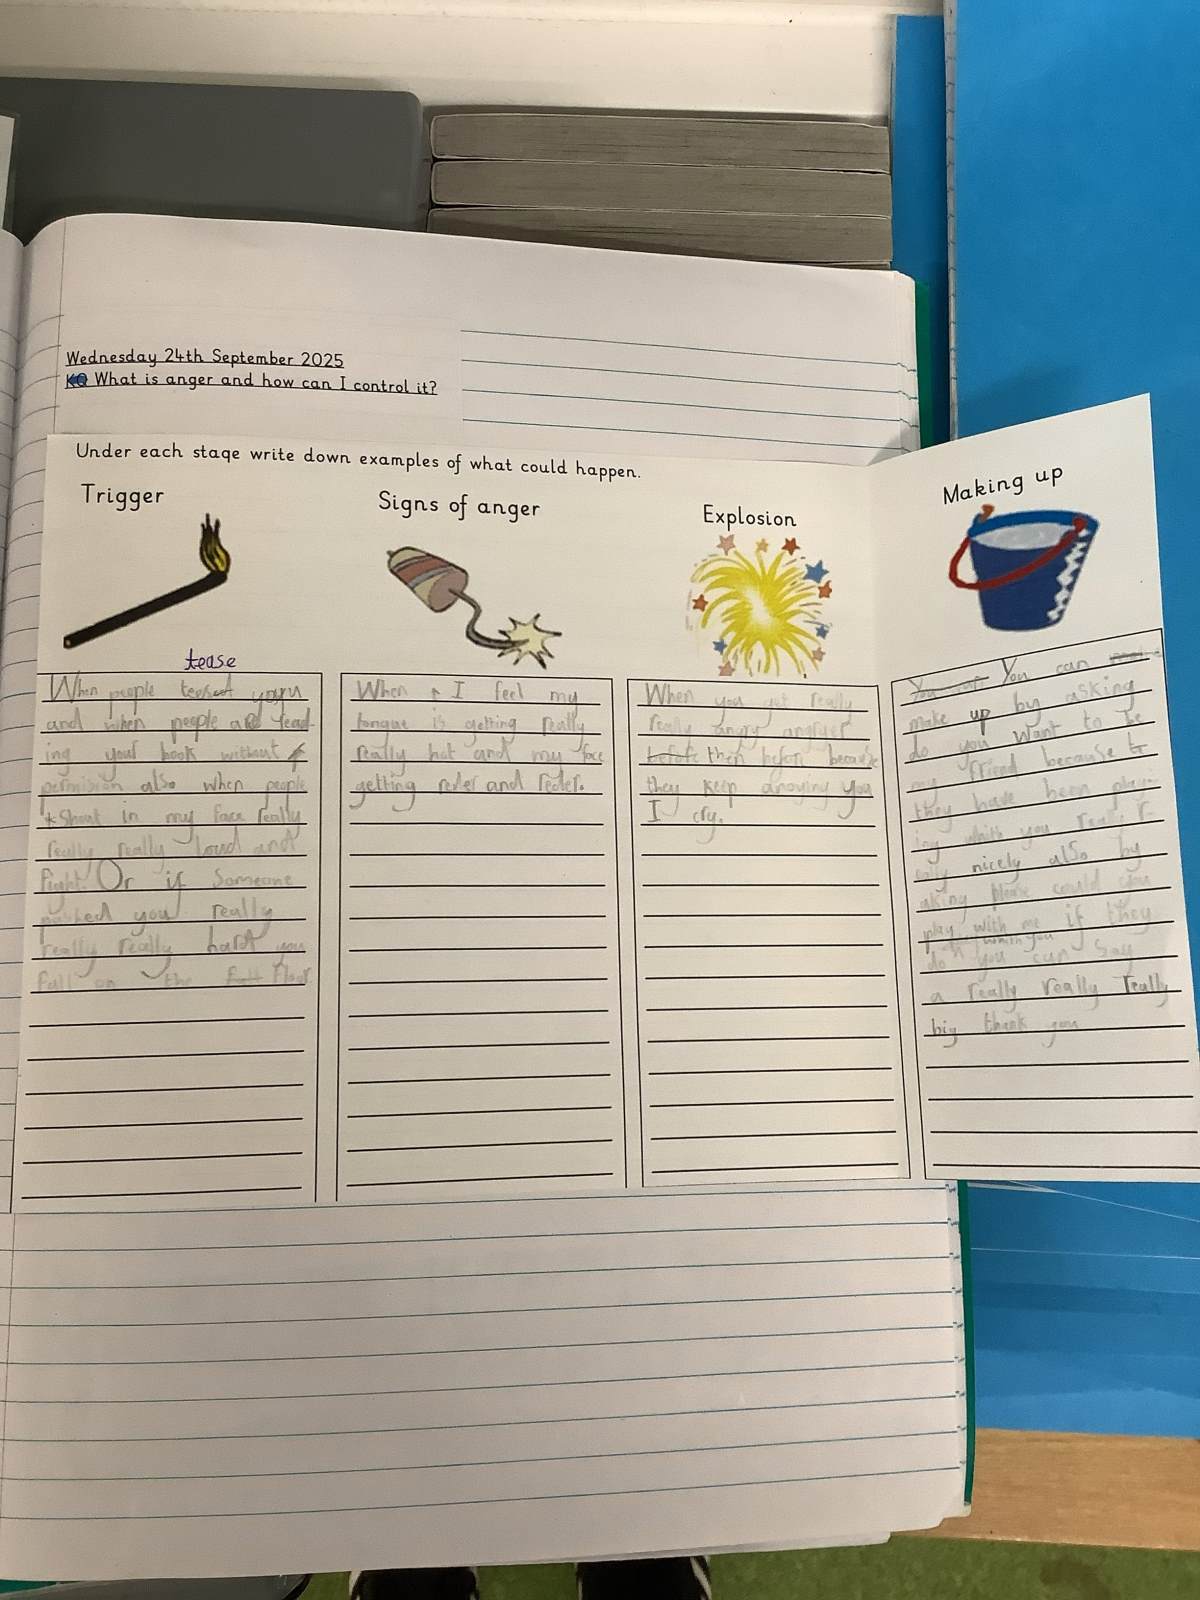 Wednesday 24th September 2025
KQ What is anger and how can I control it?
Under each stage write down examples of what could happen.
Trigger
tease
When people
and when people are read-
ing your book without
permision also when people
*Shout in my face really
really really loud and
fight. Or if Someone
pushed you really
really really hard you
fall on the Floor.
Signs of anger
When I feel my
tongue is getting really
really hot and my face
getting reder and reder.
Explosion
When you get really
really angry angryer
before then before because
they keep anoying you
I cry.
Making up
You can
make up by asking
do you want to be
my friend because
they have been play-
ing whith you really
nicely also by
aking please could you
play with me if they
whith you
do you can Say
a really really really
big thank you